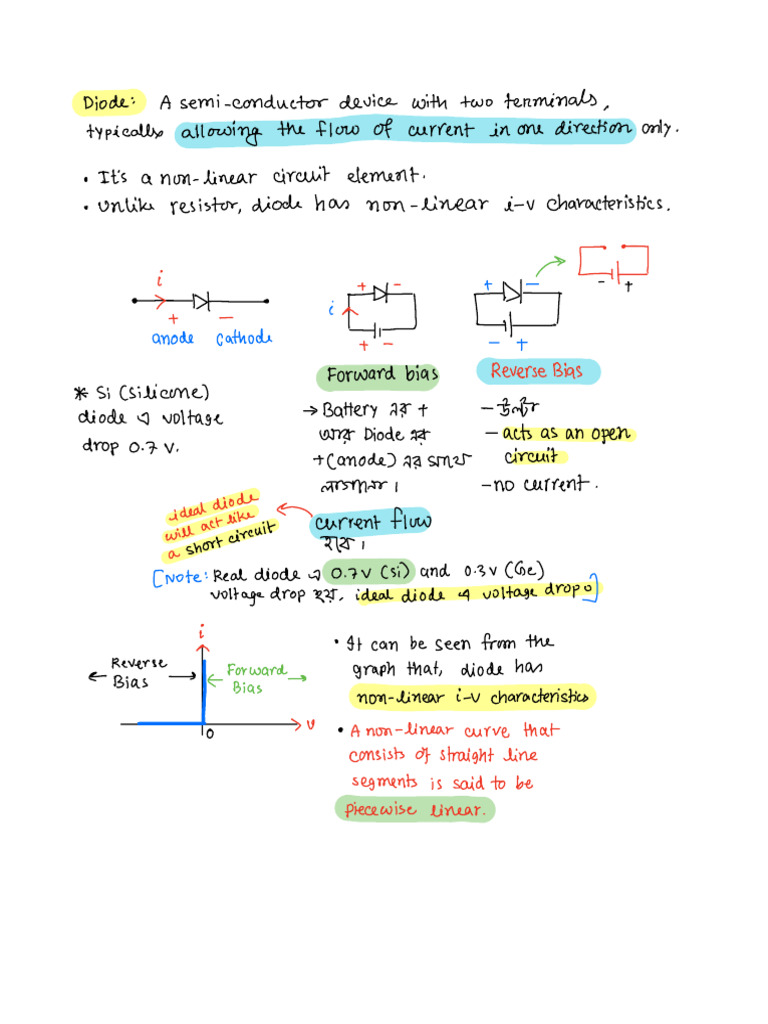 Diode: A semi-conductor device with two terminals,
typically allowing the flow of current in one direction only.
• It's a non-linear circuit element.
• Unlike resistor, diode has non-linear i-v characteristics.
i
+ -
anode cathode
+ -
i
+ -
Forward bias
+ -
- +
Reverse Bias
- +
* Si (Silicone)
diode এ voltage
drop 0.7 V.
→ Battery এর +
আর Diode এর
+ (anode) এর সাথে
লাগানো।
current flow
হবে।
- উল্টা
- acts as an open
circuit
- no current.
ideal diode
will act like
a short circuit
[Note: Real diode এ 0.7V (Si) and 0.3V (Ge)
voltage drop হয়, ideal diode এ voltage drop 0]
i
Reverse
Bias
Forward
Bias
v
0
• It can be seen from the
graph that, diode has
non-linear i-v characteristics
• A non-linear curve that
consists of straight line
segments is said to be
piecewise linear.